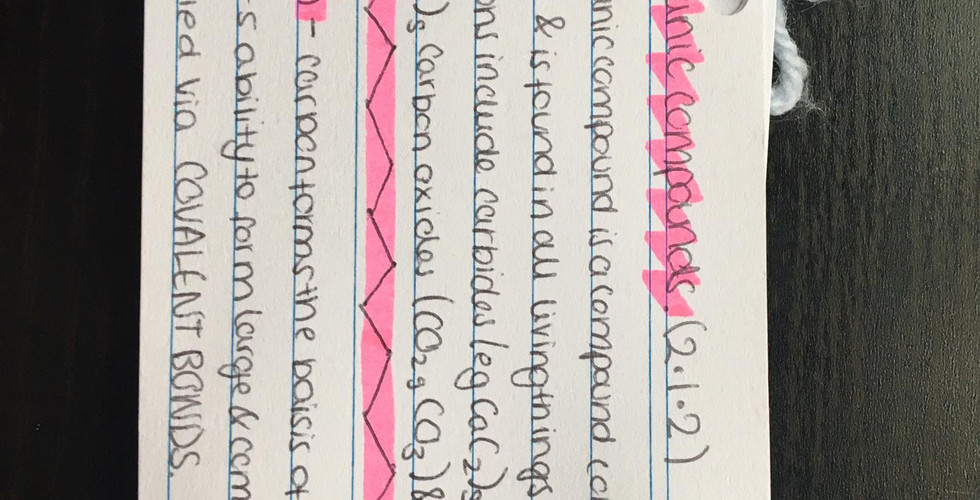 anic compounds (2.1.2)
anic compound is a compound
& is found in all living things
ons include carbides (eg CaC2),
), carbon oxides (CO2, CO3) &
- carbon forms the baisis of
s ability to form large & com
ied via COVALENT BONDS.